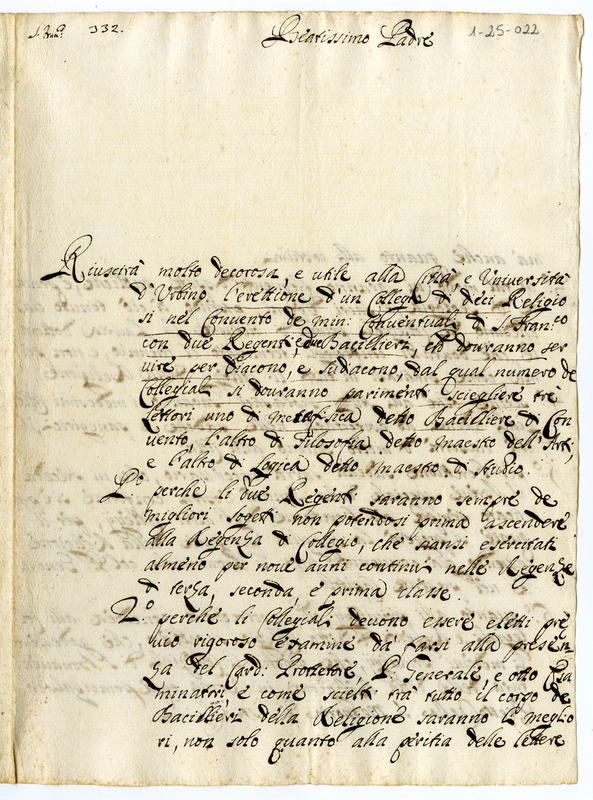 S. Fran.co 332.
1-25-022
Beatissimo Padre
Riuscirà molto decorosa, e utile alla Città, e Università
d'Urbino l'erettione d'un Collegio di dieci Religio
si nel Convento de min: Conventuali di S. Fran.co
con due Regenti, e due Bacillieri, che dovranno ser
vire per Diacono, e Sudacono, dal qual numero de
Collegiali si douranno parimenti sciegliere trè
Lettori uno di metafisica detto Bacilliere di Con
vento, l'altro di Filosofia detto maestro dell'Arti,
e l'altro di Logica detto maestro di studio.
P.o perche li due Regenti saranno sempre de
migliori sogetti non potendosi prima ascendere
alla Regenza di Collegio, che siansi esercitati
almeno per nove anni continui nelle Regenze
di terza, seconda, e prima classe.
2.o perche li Collegiali devono essere eletti pre
vio rigoroso examine da farsi alla presen
za del Card: Protettore, P. Generale, e otto Esa
minatori, e come scielti trà tutto il corpo de
Bacillieri della Religione saranno li meglio
ri, non solo quanto alla peritia delle lettere